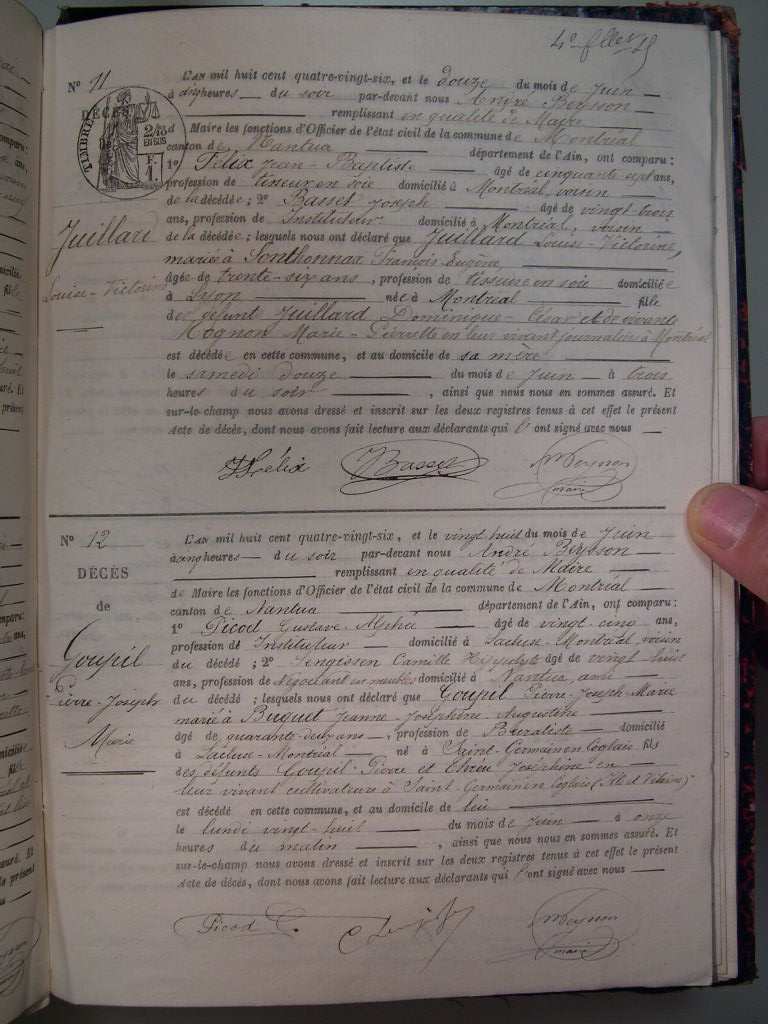 4e
No 11
DÉCÈS
De
TIMBRE
2/10
EN SUS
F.
1.
Juillard
Louise-Victorine
L'AN mil huit cent quatre-vingt-six, et le douze du mois de Juin
à cinq heures du soir par-devant nous André Beysson
remplissant en qualité de Maire
d Maire les fonctions d'Officier de l'état civil de la commune de Montréal
canton de Nantua département de l'Ain, ont comparu:
1o Félix Jean-Baptiste âgé de cinquante sept ans,
profession de tisseur en soie domicilié à Montréal, voisin
de la décédée; 2o Basset Joseph âgé de vingt trois
ans, profession de Instituteur domicilié à Montréal, voisin
de la décédée; lesquels nous ont déclaré que Juillard Louise-Victorine,
mariée à Sonthonnax François Eugène,
âgée de trente-six ans, profession de tisseur en soie domiciliée
à Lyon née à Montréal fille
des défunt Juillard Dominique-César et de vivante
Mognon Marie-Pierrette en leur vivant journaliers à Montréal
est décédée en cette commune, et au domicile de sa mère
le samedi douze du mois de Juin à trois
heures du soir, ainsi que nous nous en sommes assuré. Et
sur-le-champ nous avons dressé et inscrit sur les deux registres tenus à cet effet le présent
Acte de décès, dont nous avons fait lecture aux déclarants qui ont signé avec nous
Félix Basset Beysson
maire
No 12
DÉCÈS
de
Goupil
Pierre-Joseph
Marie
L'AN mil huit cent quatre-vingt-six, et le vingt huit du mois de Juin
à cinq heures du soir par-devant nous André Beysson
remplissant en qualité de Maire
de Maire les fonctions d'Officier de l'état civil de la commune de Montréal
canton de Nantua département de l'Ain, ont comparu:
1o Picod Gustave Alphée âgé de vingt cinq ans,
profession de Instituteur domicilié à Lacluse-Montréal, voisin
du décédé; 2o Camille Hippolyte âgé de vingt huit
ans, profession de Négociant en meubles domicilié à Nantua, ami
du décédé; lesquels nous ont déclaré que Goupil Pierre-Joseph-Marie
marié à Buquet Jeanne Joséphine Augustine
âgé de quarante-deux ans, profession de Buraliste domicilié
à Lacluse-Montréal né à Saint-Germain en Coglais fils
des défunts Goupil Pierre et Joséphine en
leur vivant cultivateurs à Saint-Germain en Coglais (Ille et Vilaine)
est décédé en cette commune, et au domicile de lui
le lundi vingt-huit du mois de Juin à onze
heures du matin, ainsi que nous nous en sommes assuré. Et
sur-le-champ nous avons dressé et inscrit sur les deux registres tenus à cet effet le présent
Acte de décès, dont nous avons fait lecture aux déclarants qui ont signé avec nous
Picod G. Beysson
maire